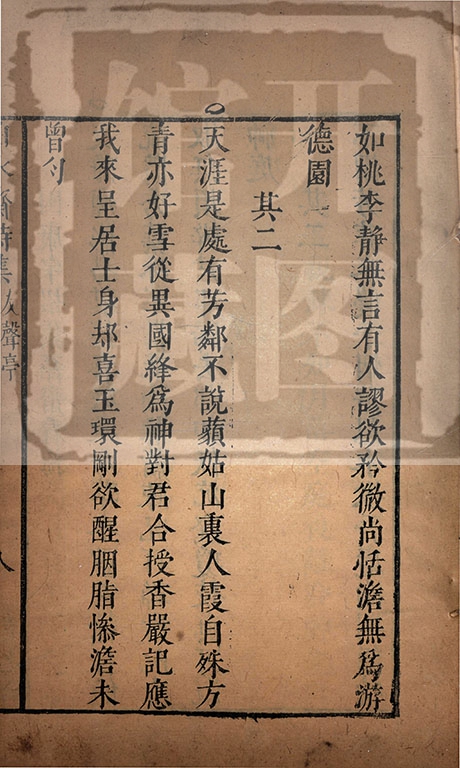 如桃李靜無言有人謬欲矜微尚恬澹無爲游
德園
其二
天涯是處有芳鄰不說蘋姑山裏人霞自殊方
青亦好雪從異國絳爲神對君合授香嚴記應
我來呈居士身却喜玉環剛欲醒胭脂慘澹未
曾勻
元图
馆藏